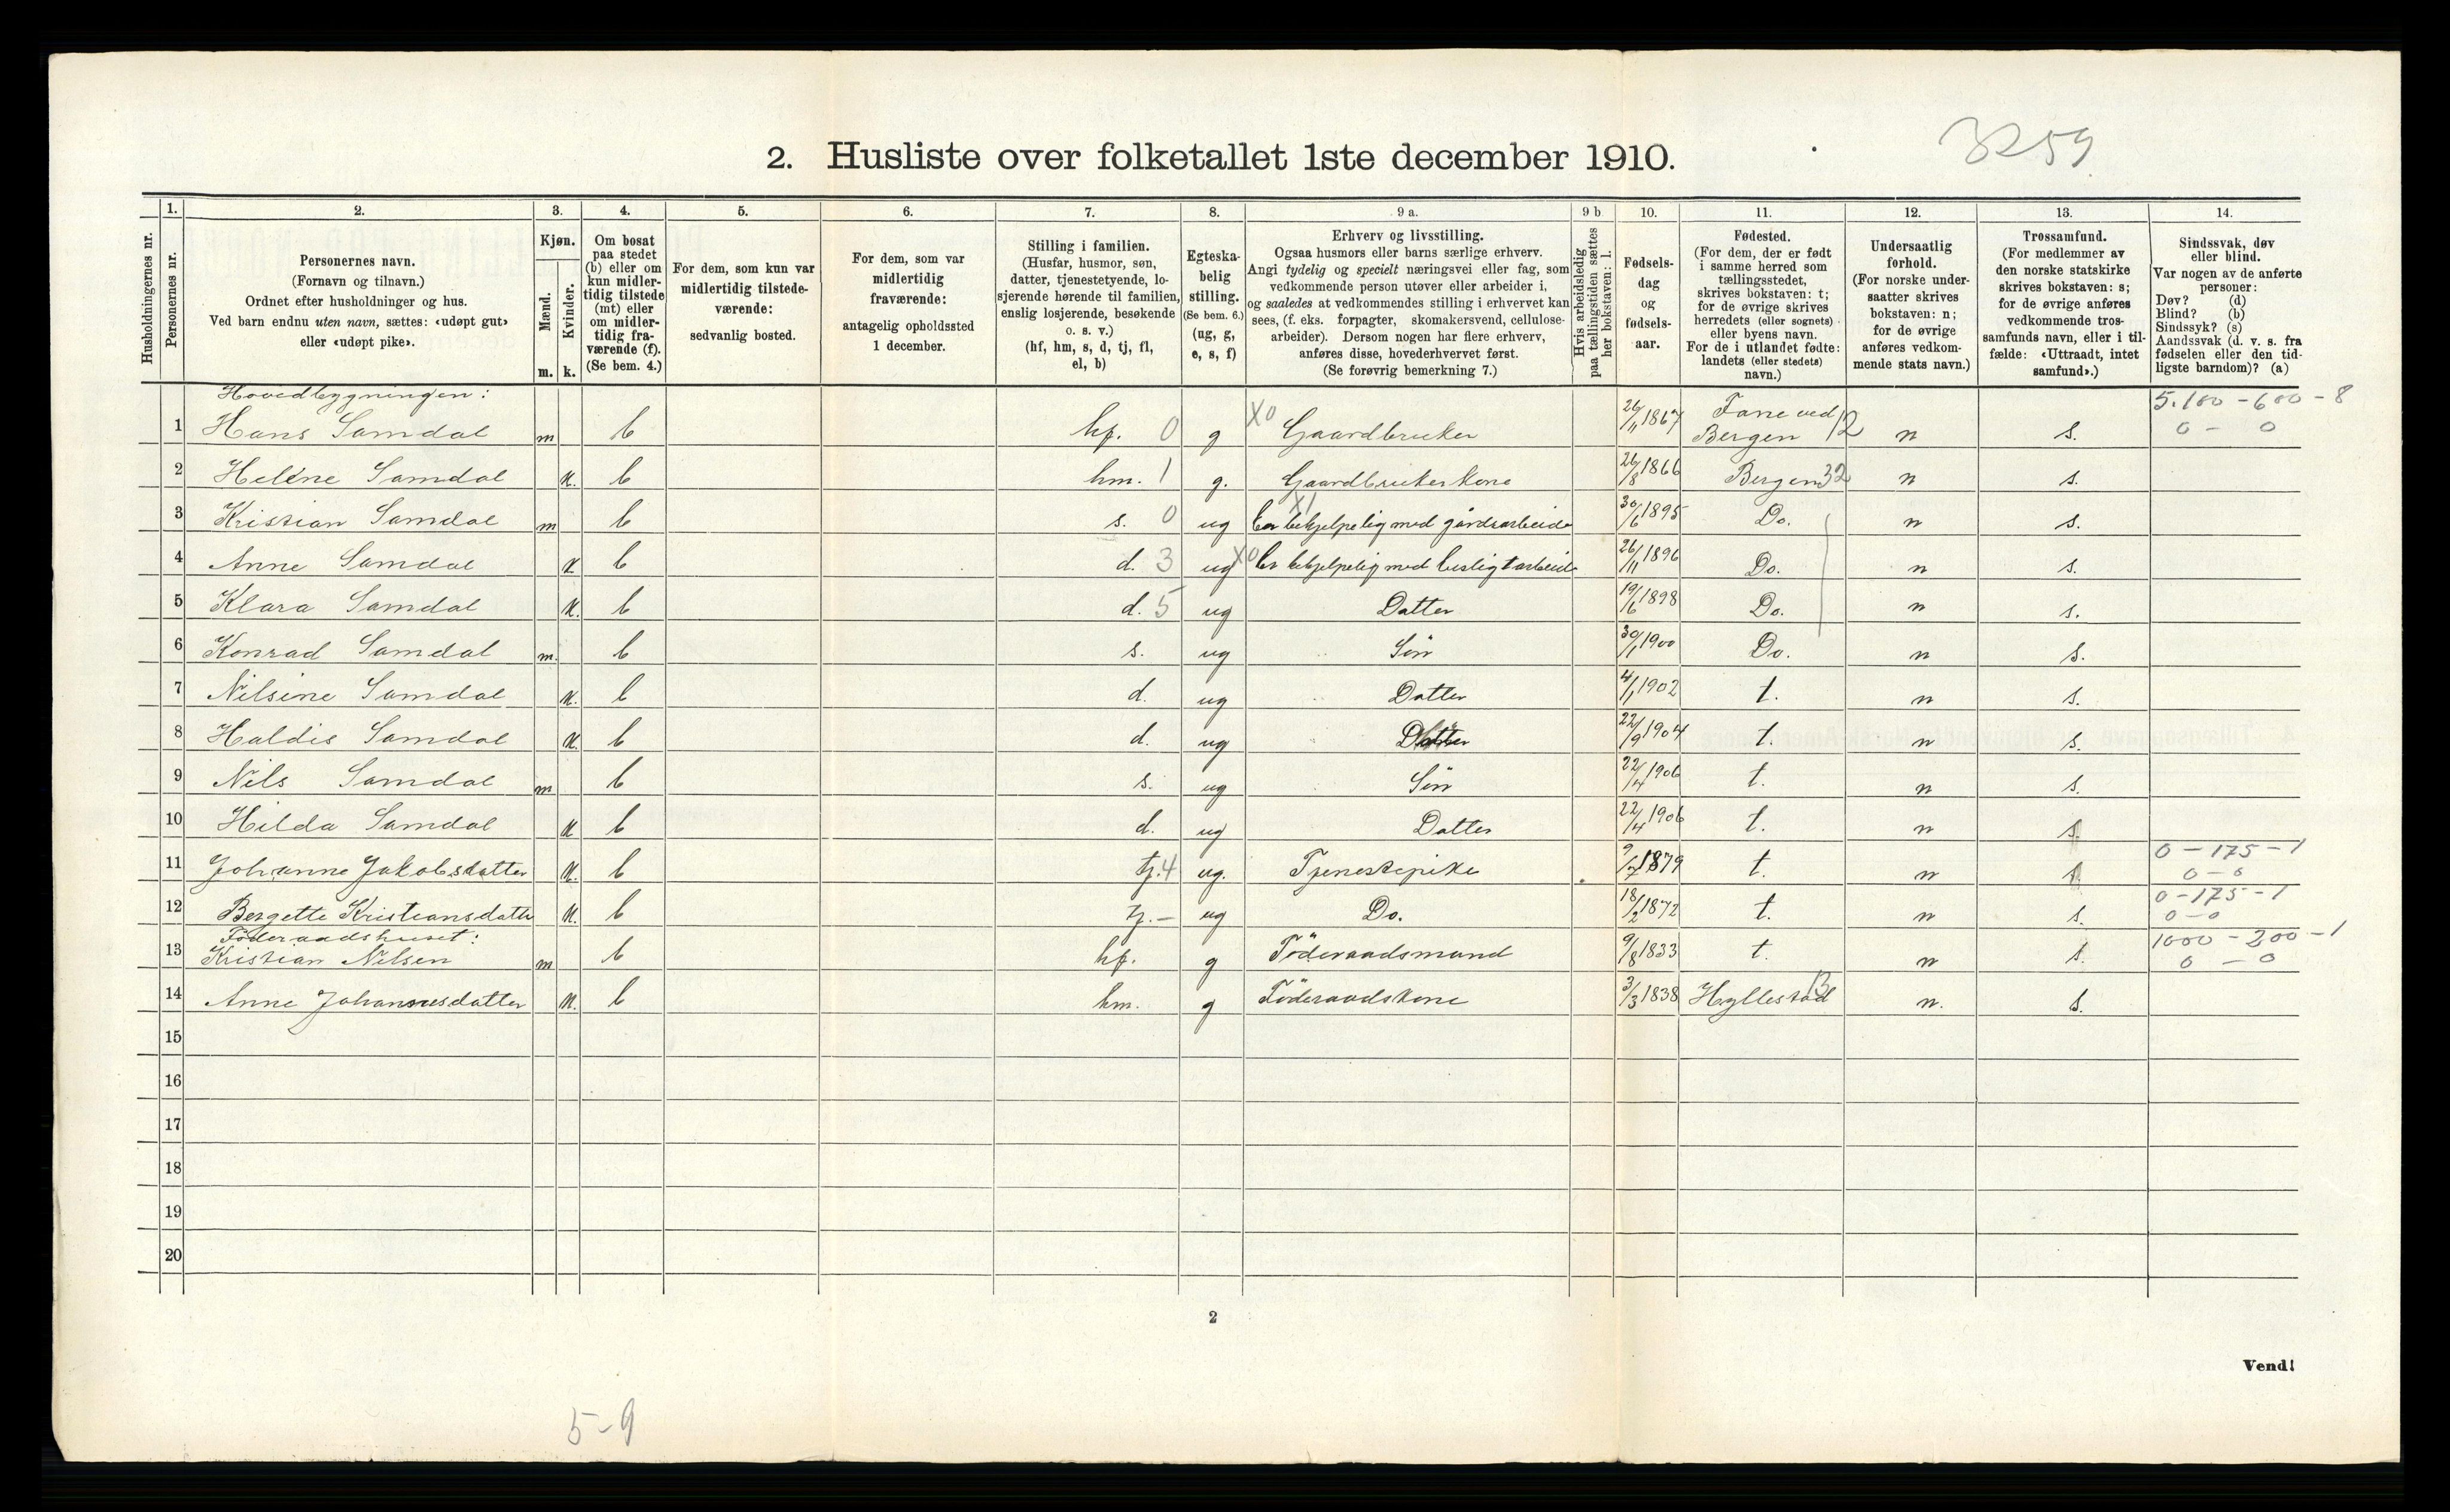 3259
2. Husliste over folketallet 1ste december 1910.
Husholdningernes nr.
1.
Personernes nr.
2.
Personernes navn.
(Fornavn og tilnavn.)
Ordnet efter husholdninger og hus.
Ved barn endnu uten navn, sættes: «udøpt gut»
eller «udøpt pike».
3.
Kjøn.
Mænd.
Kvinder.
m. k.
4.
Om bosat
paa stedet
(b) eller om
kun midler-
tidig tilstede
(mt) eller
om midler-
tidig fra-
værende (f).
(Se bem. 4.)
5.
For dem, som kun var
midlertidig tilstede-
værende:
sedvanlig bosted.
6.
For dem, som var
midlertidig
fraværende:
antagelig opholdssted
1 december.
7.
Stilling i familien.
(Husfar, husmor, søn,
datter, tjenestetyende, lo-
sjerende hørende til familien,
enslig losjerende, besøkende
o. s. v.)
(hf, hm, s, d, tj, fl,
el, b)
8.
Egteska-
belig
stilling.
(Se bem. 6.)
(ug, g,
e, s, f)
9 a.
Erhverv og livsstilling.
Ogsaa husmors eller barns særlige erhverv.
Angi tydelig og specielt næringsvei eller fag, som
vedkommende person utøver eller arbeider i,
og saaledes at vedkommendes stilling i erhvervet kan
sees, (f. eks. forpagter, skomakersvend, cellulose-
arbeider). Dersom nogen har flere erhverv,
anføres disse, hovederhvervet først.
(Se forøvrig bemerkning 7.)
9 b
Hvis arbeidsledig
paa tællingstiden sættes
her bokstaven: l.
10.
Fødsels-
dag
og
fødsels-
aar.
11.
Fødested.
(For dem, der er født
i samme herred som
tællingsstedet,
skrives bokstaven: t;
for de øvrige skrives
herredets (eller sognets)
eller byens navn.
For de i utlandet fødte:
landets (eller stedets)
navn.)
12.
Undersaatlig
forhold.
(For norske under-
saatter skrives
bokstaven: n;
for de øvrige
anføres vedkom-
mende stats navn.)
13.
Trossamfund.
(For medlemmer av
den norske statskirke
skrives bokstaven: s;
for de øvrige anføres
vedkommende tros-
samfunds navn, eller i til-
fælde: «Uttraadt, intet
samfund».)
14.
Sindssvak, døv
eller blind.
Var nogen av de anførte
personer:
Døv? (d)
Blind? (b)
Sindssyk? (s)
Aandssvak (d. v. s. fra
fødselen eller den tid-
ligste barndom)? (a)
Hovedbygningen: 5.100 - 600 - 8
1 Hans Samdal m b hf. 0 g X0 Gaardbruker 26/11 1867 Fane ved Bergen 12 n s. 0 - 0
2 Helene Samdal k. b hm. 1 g. Gaardbrukerkone 26/8 1866 Bergen 32 n s.
3 Kristian Samdal m b s. 0 ug X1 Er behjelpelig med gårdsarbeide 30/6 1895 Do. n s.
4 Anne Samdal k b d. 3 ug X0 Er behjelpelig med husligt arbeide 26/11 1896 Do. n s.
5 Klara Samdal k. b d. 5 ug Datter 19/6 1898 Do. n s.
6 Konrad Samdal m. b s. ug Søn 30/1 1900 Do. n s.
7 Nilsine Samdal k. b d. ug Datter 4/1 1902 t. n s.
8 Haldis Samdal k. b d. ug Datter 22/9 1904 t. n s.
9 Nils Samdal m b s. ug Søn 22/4 1906 t. n s.
10 Hilda Samdal k b d. ug Datter 22/4 1906 t. n s.
0 - 175 - 1
11 Johanne Jakobsdatter k. b tj. 4 ug. Tjenestepike 9/7 1879 t. n s 0 - 0
0 - 175 - 1
12 Bergette Kristiansdatter k. b tj. - ug Do. 18/2 1872 t. n s. 0 - 0
Føderaadshuset: 1000 - 200 - 1
13 Kristian Nilsen m b hf. g Föderaadsmand 9/8 1833 t. n s. 0 - 0
14 Anne Johannesdatter k. b hm. g Föderaadskone 3/3 1838 Hyllestad 13 n. s.
15
16
17
18
19
20
2
Vend!
5-9